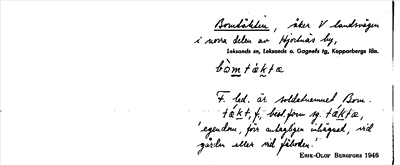 Bomtäkten, åker V landsvägen
i norra delen av Hjortnäs by,
Leksands sn, Leksands o. Gagnefs tg, Kopparbergs län.
bòm ták tæ
F. led. är soldatnamnet Bom.
tákt, f., best. form sg. táktæ,
'egendom, förr antagligen inhägnad, vid
gården eller vid fäboden.'
ERIK-OLOF BERGFORS 1946